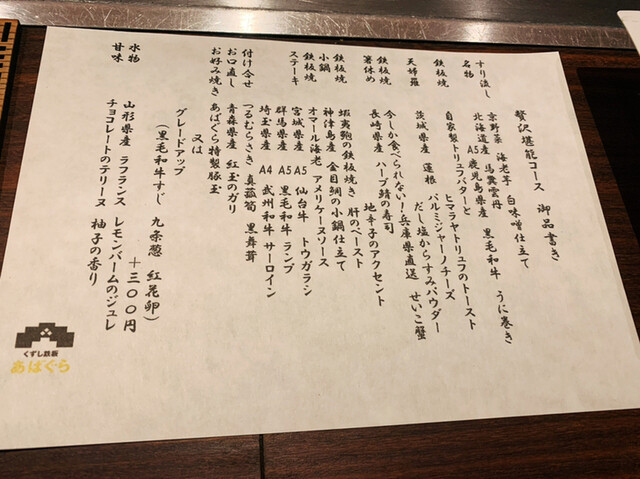 贅沢堪能コース 御品書き
すり流し 京野菜 海老芋 白味噌仕立て
名物 北海道産 馬糞雲丹 うに巻き
A5鹿児島県産 黒毛和牛
鉄板焼 自家製トリュフバターと
ヒマラヤトリュフのトースト
パルミジャーノチーズ
天婦羅 茨城県産 蓮根 だし塩からすみパウダー
鉄板焼 今しか食べられない!兵庫県直送 せいこ蟹
箸休め 長崎県産 ハーブ鯖の寿司
地辛子のアクセント
鉄板焼 蝦夷鮑の鉄板焼き 肝のペースト
小鍋 神津島産 金目鯛の小鍋仕立て
鉄板焼 オマール海老 アメリケーヌソース
ステーキ 宮城県産 A5 仙台牛 トウガラシ
群馬県産 A5 黒毛和牛 ランプ
埼玉県産 A4 武州和牛 サーロイン
付け合せ つるむらさき 真菰筍 黒舞茸
お口直し 青森県産 紅玉のガリ
お好み焼き あばぐら特製豚玉
又は
グレードアップ
(黒毛和牛すじ 九条葱 紅花卵)
+300円
水物 山形県産 ラフランス レモンバームのジュレ
甘味 チョコレートのテリーヌ 柚子の香り
くずし鉄板
あばぐら